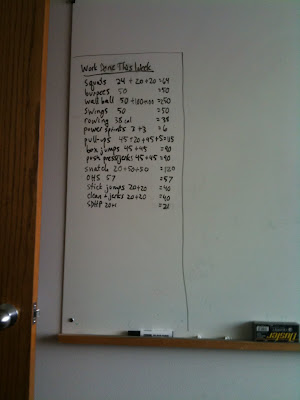 Work Done This Week
squats 24 + 20 + 20 = 64
burpees 50 = 50
wall ball 50 + 100 = 150
swings 50 = 50
rowing 38 cal = 38
power sprints 3 + 3 = 6
pull-ups 45 + 20 + 45 + 5 = 115
box jumps 45 + 45 = 90
push press/jerks 45 + 45 = 90
snatch 20 + 50 + 50 = 120
OHS 57 = 57
stick jumps 20 + 20 = 40
clean + jerks 20 + 20 = 40
SDHP 20+1 = 21